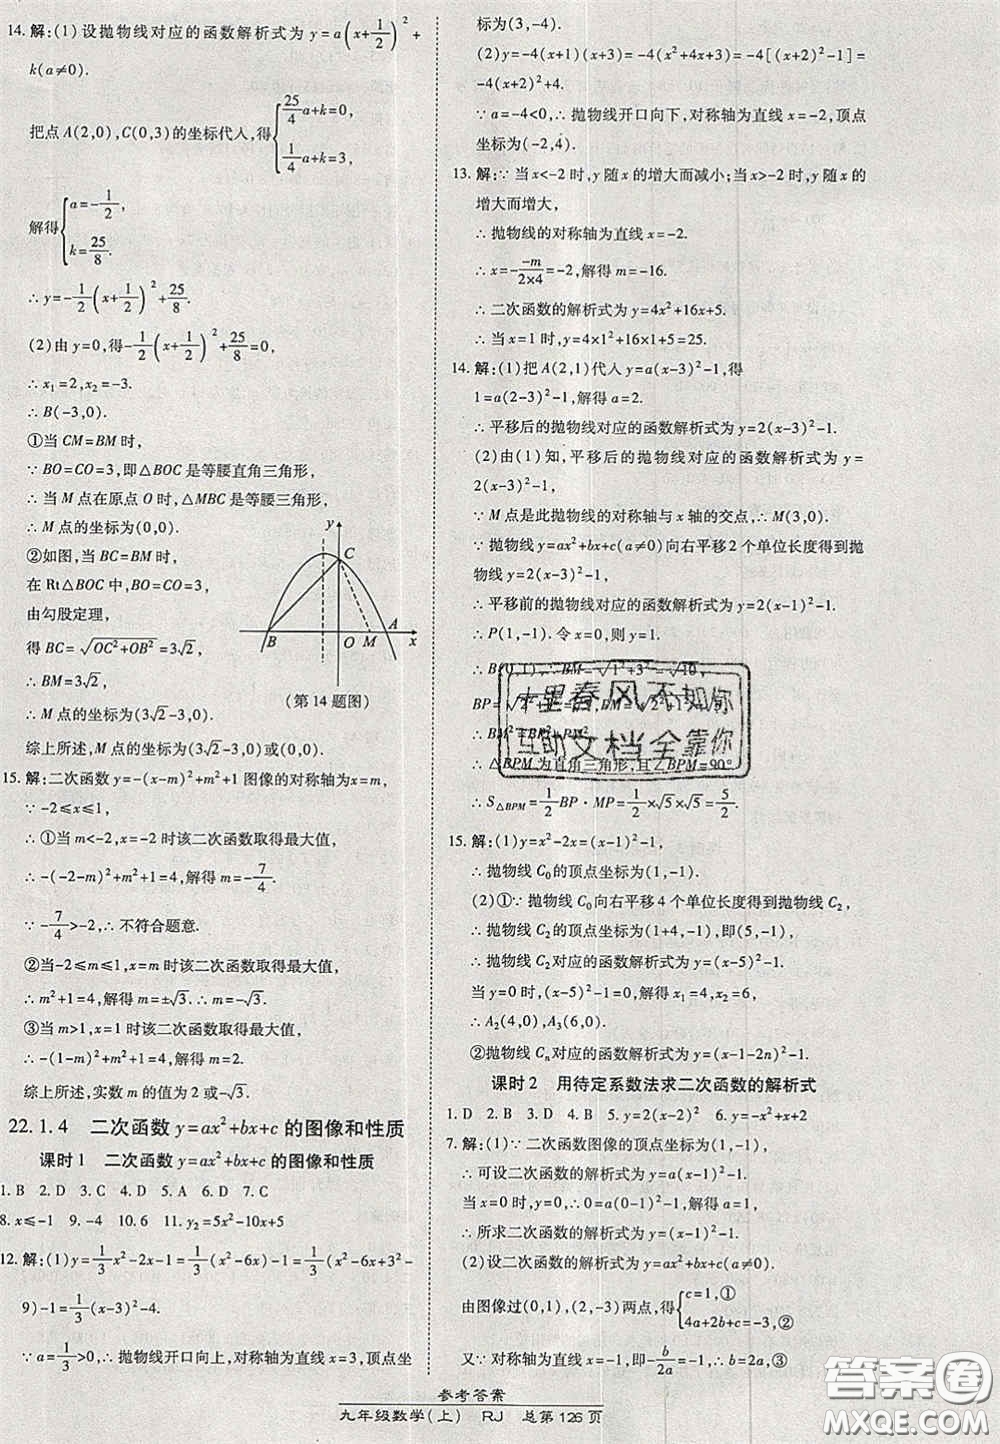 14.解:(1)设抛物线对应的函数解析式为 y=a(x+1/2)²+
k(a≠0).
把点A(2,0),C(0,3)的坐标代入,得{25/4 a+k=0,
1/4 a+k=3,
解得{a=-1/2,
k=25/8.
∴y=-1/2(x+1/2)²+25/8.
(2)由y=0,得-1/2(x+1/2)²+25/8=0,
∴x₁=2,x₂=-3.
∴B(-3,0).
①当CM=BM时,
∵BO=CO=3,即△BOC是等腰直角三角形,
∴当M点在原点O时,△MBC是等腰三角形,
∴M点的坐标为(0,0).
②如图,当BC=BM时,
在Rt△BOC中,BO=CO=3,
由勾股定理,
得BC=√(OC²+OB²)=3√2,
∴BM=3√2,
∴M点的坐标为(3√2-3,0).
y
C
B
O
M
A
x
(第14题图)
综上所述,M点的坐标为(3√2-3,0)或(0,0).
15.解:二次函数y=-(x-m)²+m²+1图像的对称轴为x=m,
∵-2≤x≤1,
∴①当m<-2,x=-2时该二次函数取得最大值,
∴-(-2-m)²+m²+1=4,解得m=-7/4.
∵-7/4>-2,∴不符合题意.
②当-2≤m≤1,x=m时该二次函数取得最大值,
∴m²+1=4,解得m=±√3.∴m=-√3.
③当m>1,x=1时该二次函数取得最大值,
∴-(1-m)²+m²+1=4,解得m=2.
综上所述,实数m的值为2或-√3.
22.1.4 二次函数y=ax²+bx+c的图像和性质
课时1 二次函数y=ax²+bx+c的图像和性质
1.B 2.D 3.C 4.D 5.A 6.D 7.C
8.x≤-1 9.-4 10.6 11.y₂=5x²-10x+5
12.解:(1)y=1/3x²-2x-1=1/3(x²-6x)-1=1/3(x²-6x+3²-
9)-1=1/3(x-3)²-4.
∵a=1/3>0,∴抛物线开口向上,对称轴为直线x=3,顶点坐
标为(3,-4).
(2)y=-4(x+1)(x+3)=-4(x²+4x+3)=-4[(x+2)²-1]=
-4(x+2)²+4.
∵a=-4<0,∴抛物线开口向下,对称轴为直线x=-2,顶点
坐标为(-2,4).
13.解:∵当x<-2时,y随x的增大而减小;当x>-2时,y随x的
增大而增大,
∴抛物线的对称轴为直线x=-2.
∴x=-(-m)/(2×4)=-2,解得m=-16.
∴二次函数的解析式为y=4x²+16x+5.
∴当x=1时,y=4×1²+16×1+5=25.
14.解:(1)把A(2,1)代入y=a(x-3)²-1,得
1=a(2-3)²-1,解得a=2.
∴平移后的抛物线对应的函数解析式为y=2(x-3)²-1.
(2)由(1)知,平移后的抛物线对应的函数解析式为y=
2(x-3)²-1,
∵M点是此抛物线的对称轴与x轴的交点,∴M(3,0).
∵抛物线y=ax²+bx+c(a≠0)向右平移2个单位长度得到抛
物线y=2(x-3)²-1,
∴平移前的抛物线对应的函数解析式为y=2(x-1)²-1.
∴P(1,-1).令x=0,则y=1.
∴B(0,1),∴BM=√(1²+3²)=√10,
BP=
∴BM²=
十里春风不如你
互助文档全靠你
∴△BPM为直角三角形,且∠BPM=90°.
∴S△BPM=1/2BP·MP=1/2×√5×√5=5/2.
15.解:(1)y=x²-2x=(x-1)²-1,
∴抛物线C₀的顶点坐标为(1,-1).
(2)①∵抛物线C₀向右平移4个单位长度得到抛物线C₂,
∴抛物线C₂的顶点坐标为(1+4,-1),即(5,-1),
∴抛物线C₂对应的函数解析式为y=(x-5)²-1.
当y=0时,(x-5)²-1=0,解得x₁=4,x₂=6,
∴A₂(4,0),A₃(6,0).
②抛物线Cₙ对应的函数解析式为y=(x-1-2n)²-1.
课时2 用待定系数法求二次函数的解析式
1.D 2.D 3.D 4.B 5.B 6.y=-x²+x+2
7.解:(1)∵二次函数图像的顶点坐标为(1,-1),
∴可设二次函数的解析式为y=a(x-1)²-1,
当x=0时,y=0,∴0=a(0-1)²-1,解得a=1,
∴所求二次函数的解析式为y=(x-1)²-1.
(2)设二次函数的解析式为y=ax²+bx+c(a≠0),
由图像过(0,1),(2,-3)两点,得{c=1,①
4a+2b+c=-3,②
又∵对称轴为直线x=-1,即-b/2a=-1,∴b=2a,③
参考答案
九年级数学(上) RJ 总第126页
答案圈
MXQE.COM